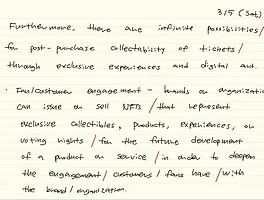 3/5 (Sat)
Furthermore, there are infinite possibilities /
for post-purchase collectability of tickets /
through exclusive experiences and digital art.
· Fan/customer engagement - brands or organizations
can issue or sell NFTs / that represent
exclusive collectibles, products, experiences, or
voting rights / for the future development
of a product or service / in order to deepen
the engagement / customers / fans have / with
the brand / organization.